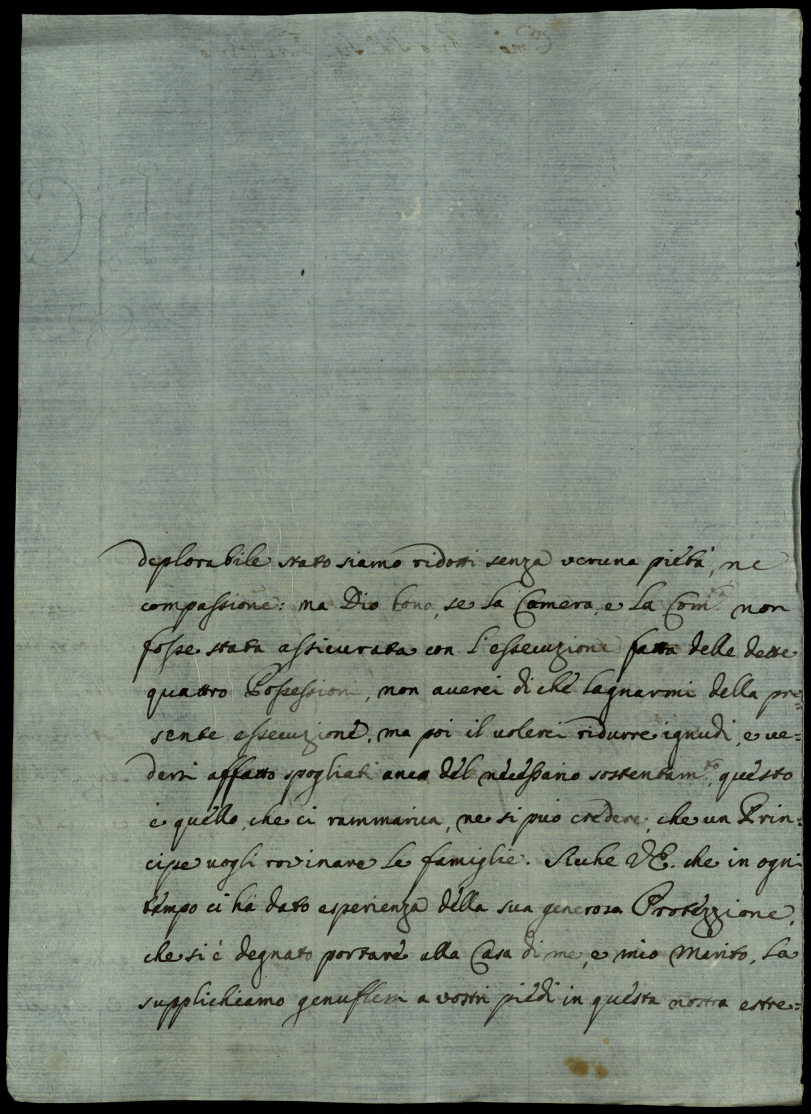 deplorabile stato siamo ridotti senza veruna pietà, ne
compassione: ma Dio bono, se la Camera, e la Com.tà non
fosse stata assicurata con l'essecuzione fatta delle dette
quattro Possessioni, non averei di che lagnarmi della pre=
sente essecuzione, ma poi il volerci ridurre ignudi, e ve=
dersi affatto spogliati anco del necessario sostentam.to, questo
è quello, che ci rammarica, ne si può credere, che un Prin=
cipe vogli rovinare le famiglie. VE. che in ogni
tempo ci hà dato esperienza della sua generosa Protezzione,
che si è degnato portare alla Casa di me, e mio Marito, La
supplichiamo genuflessi a vostri piedi in questa nostra estre=